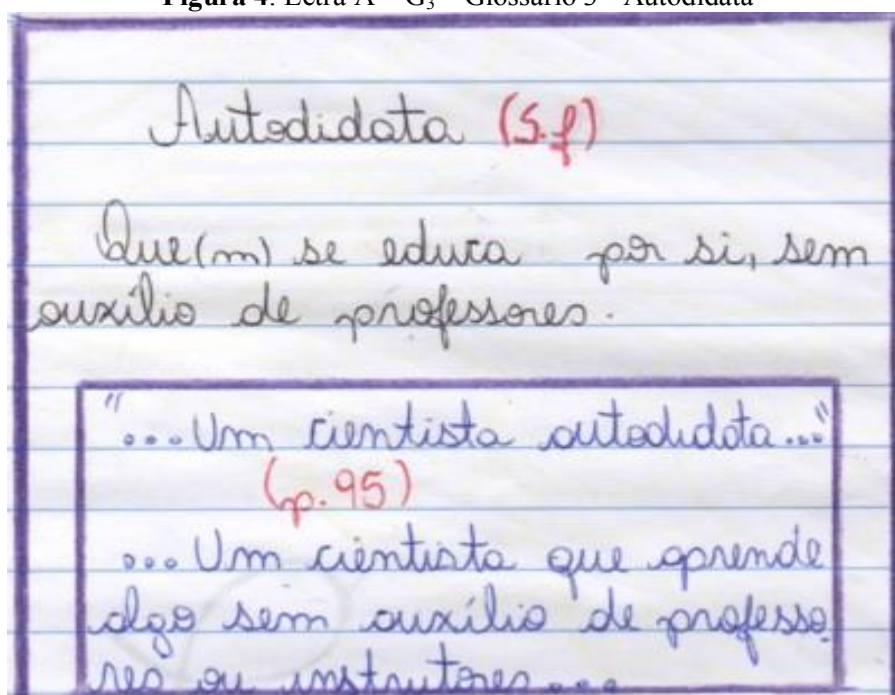 Figura 4: Letra A – G₃ – Glossário 3 – Autodidata
Autodidata (S.f)
Que(m) se educa por si, sem
auxílio de professores.
"...Um cientista autodidata..."
(p.95)
...Um cientista que aprende
algo sem auxílio de professo
res ou instrutores...